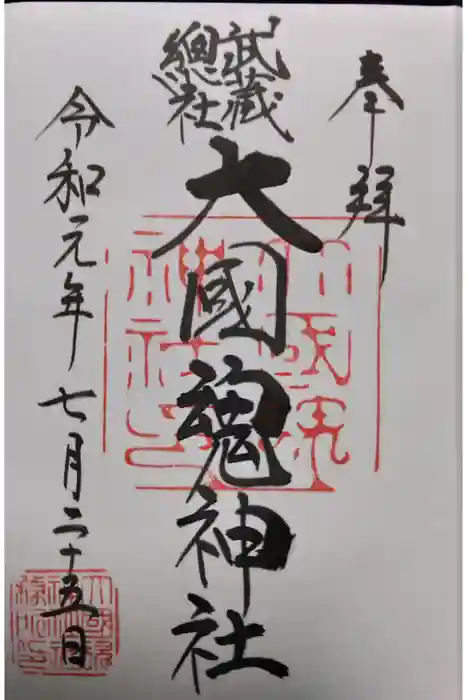 奉拝
武蔵
總社
大國魂神社
令和元年七月二十五日